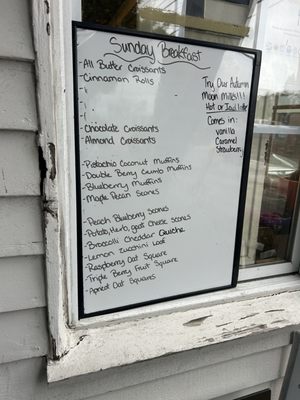 Sunday Breakfast
- All Butter Croissants
- Cinnamon Rolls
- Chocolate Croissants
- Almond Croissants
- Pistachio Coconut Muffins
- Double Berry Crumb Muffins
- Blueberry Muffins
- Maple Pecan Scones
- Peach Blueberry Scones
- Potato, Herb, goat Cheese Scones
- Broccoli Cheddar Quiche
- Lemon Zucchini Loaf
- Raspberry Oat Square
- Triple Berry Fruit Square
- Apricot Oat Squares
Try Our Autumn
Moon Milks!!!
Hot or Iced Latte
Comes in:
vanilla
Caramel
Strawberry